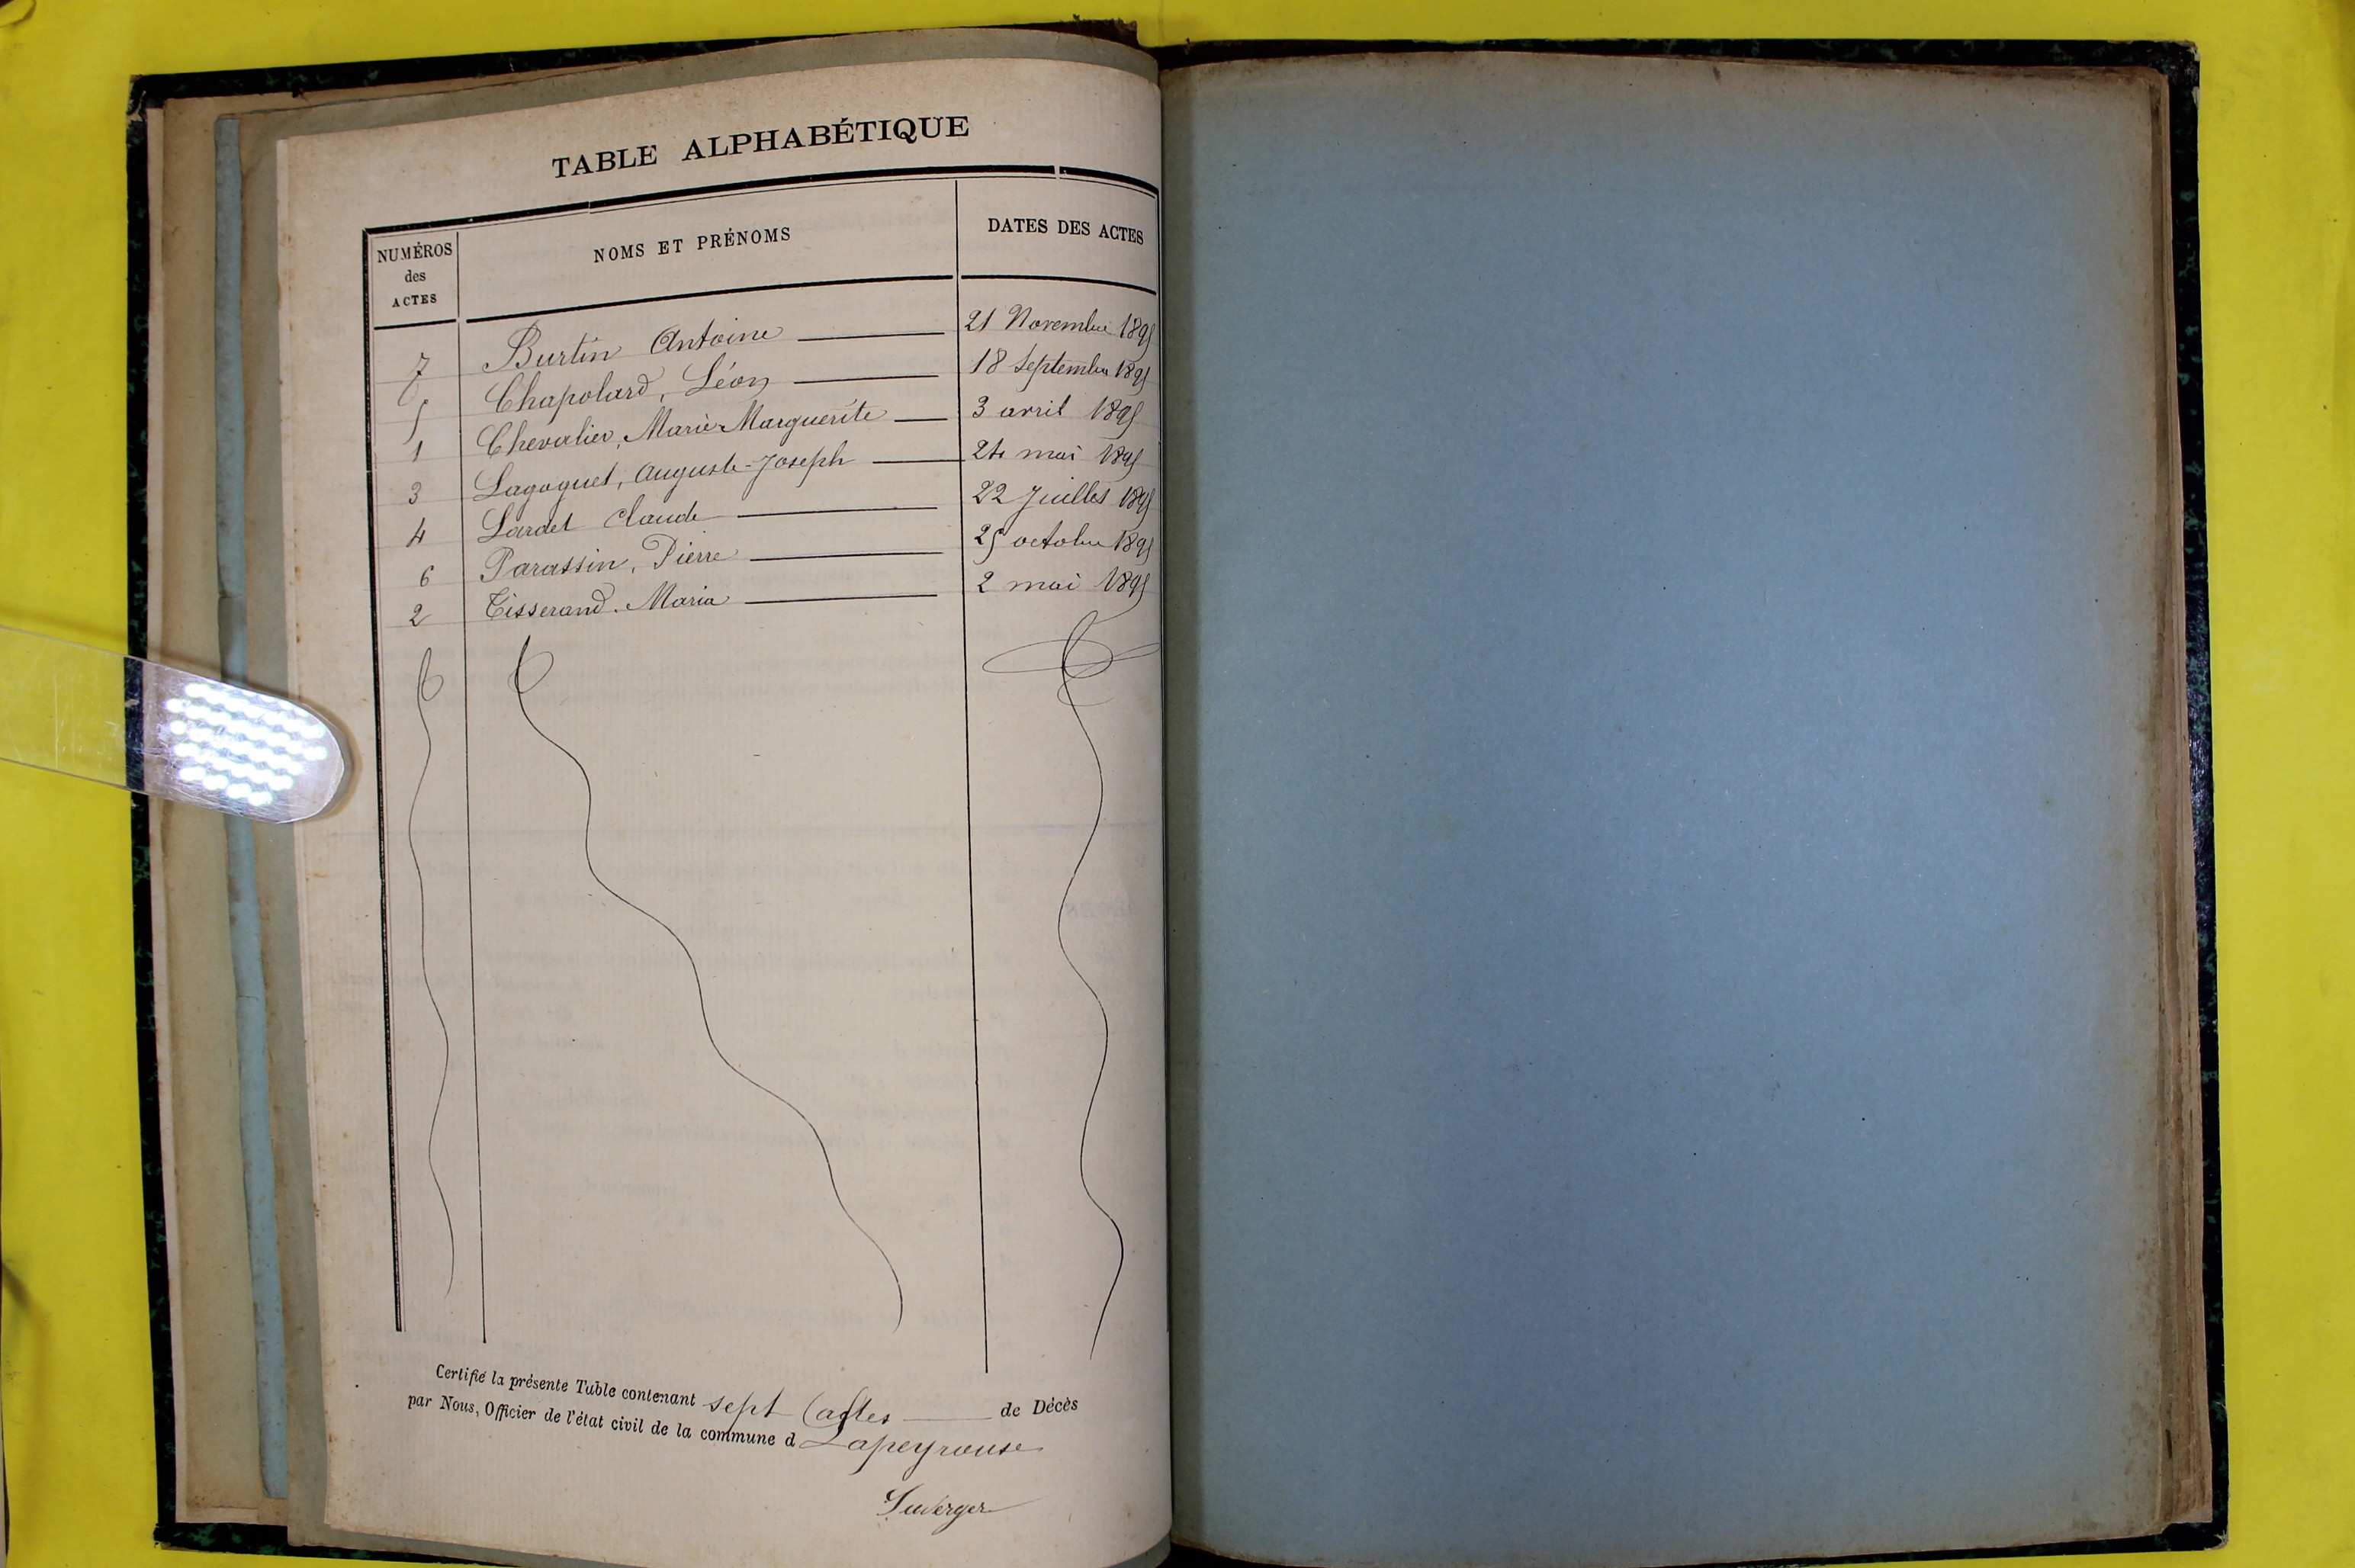 TABLE ALPHABÉTIQUE
NUMÉROS des ACTES NOMS ET PRÉNOMS DATES DES ACTES
7 Burtin Antoine 21 Novembre 1895
5 Chapolard, Léon 18 Septembre 1895
1 Chevalier, Marie-Marguerite 3 avril 1895
3 Lagoguet, Auguste-Joseph 24 mai 1895
4 Lardet Claude 22 Juillet 1895
6 Parassin, Pierre 25 octobre 1895
2 Tisserand. Maria 2 mai 1895
Certifié la présente Table contenant sept actes de Décès
par Nous, Officier de l'état civil de la commune d Lapeyrouse